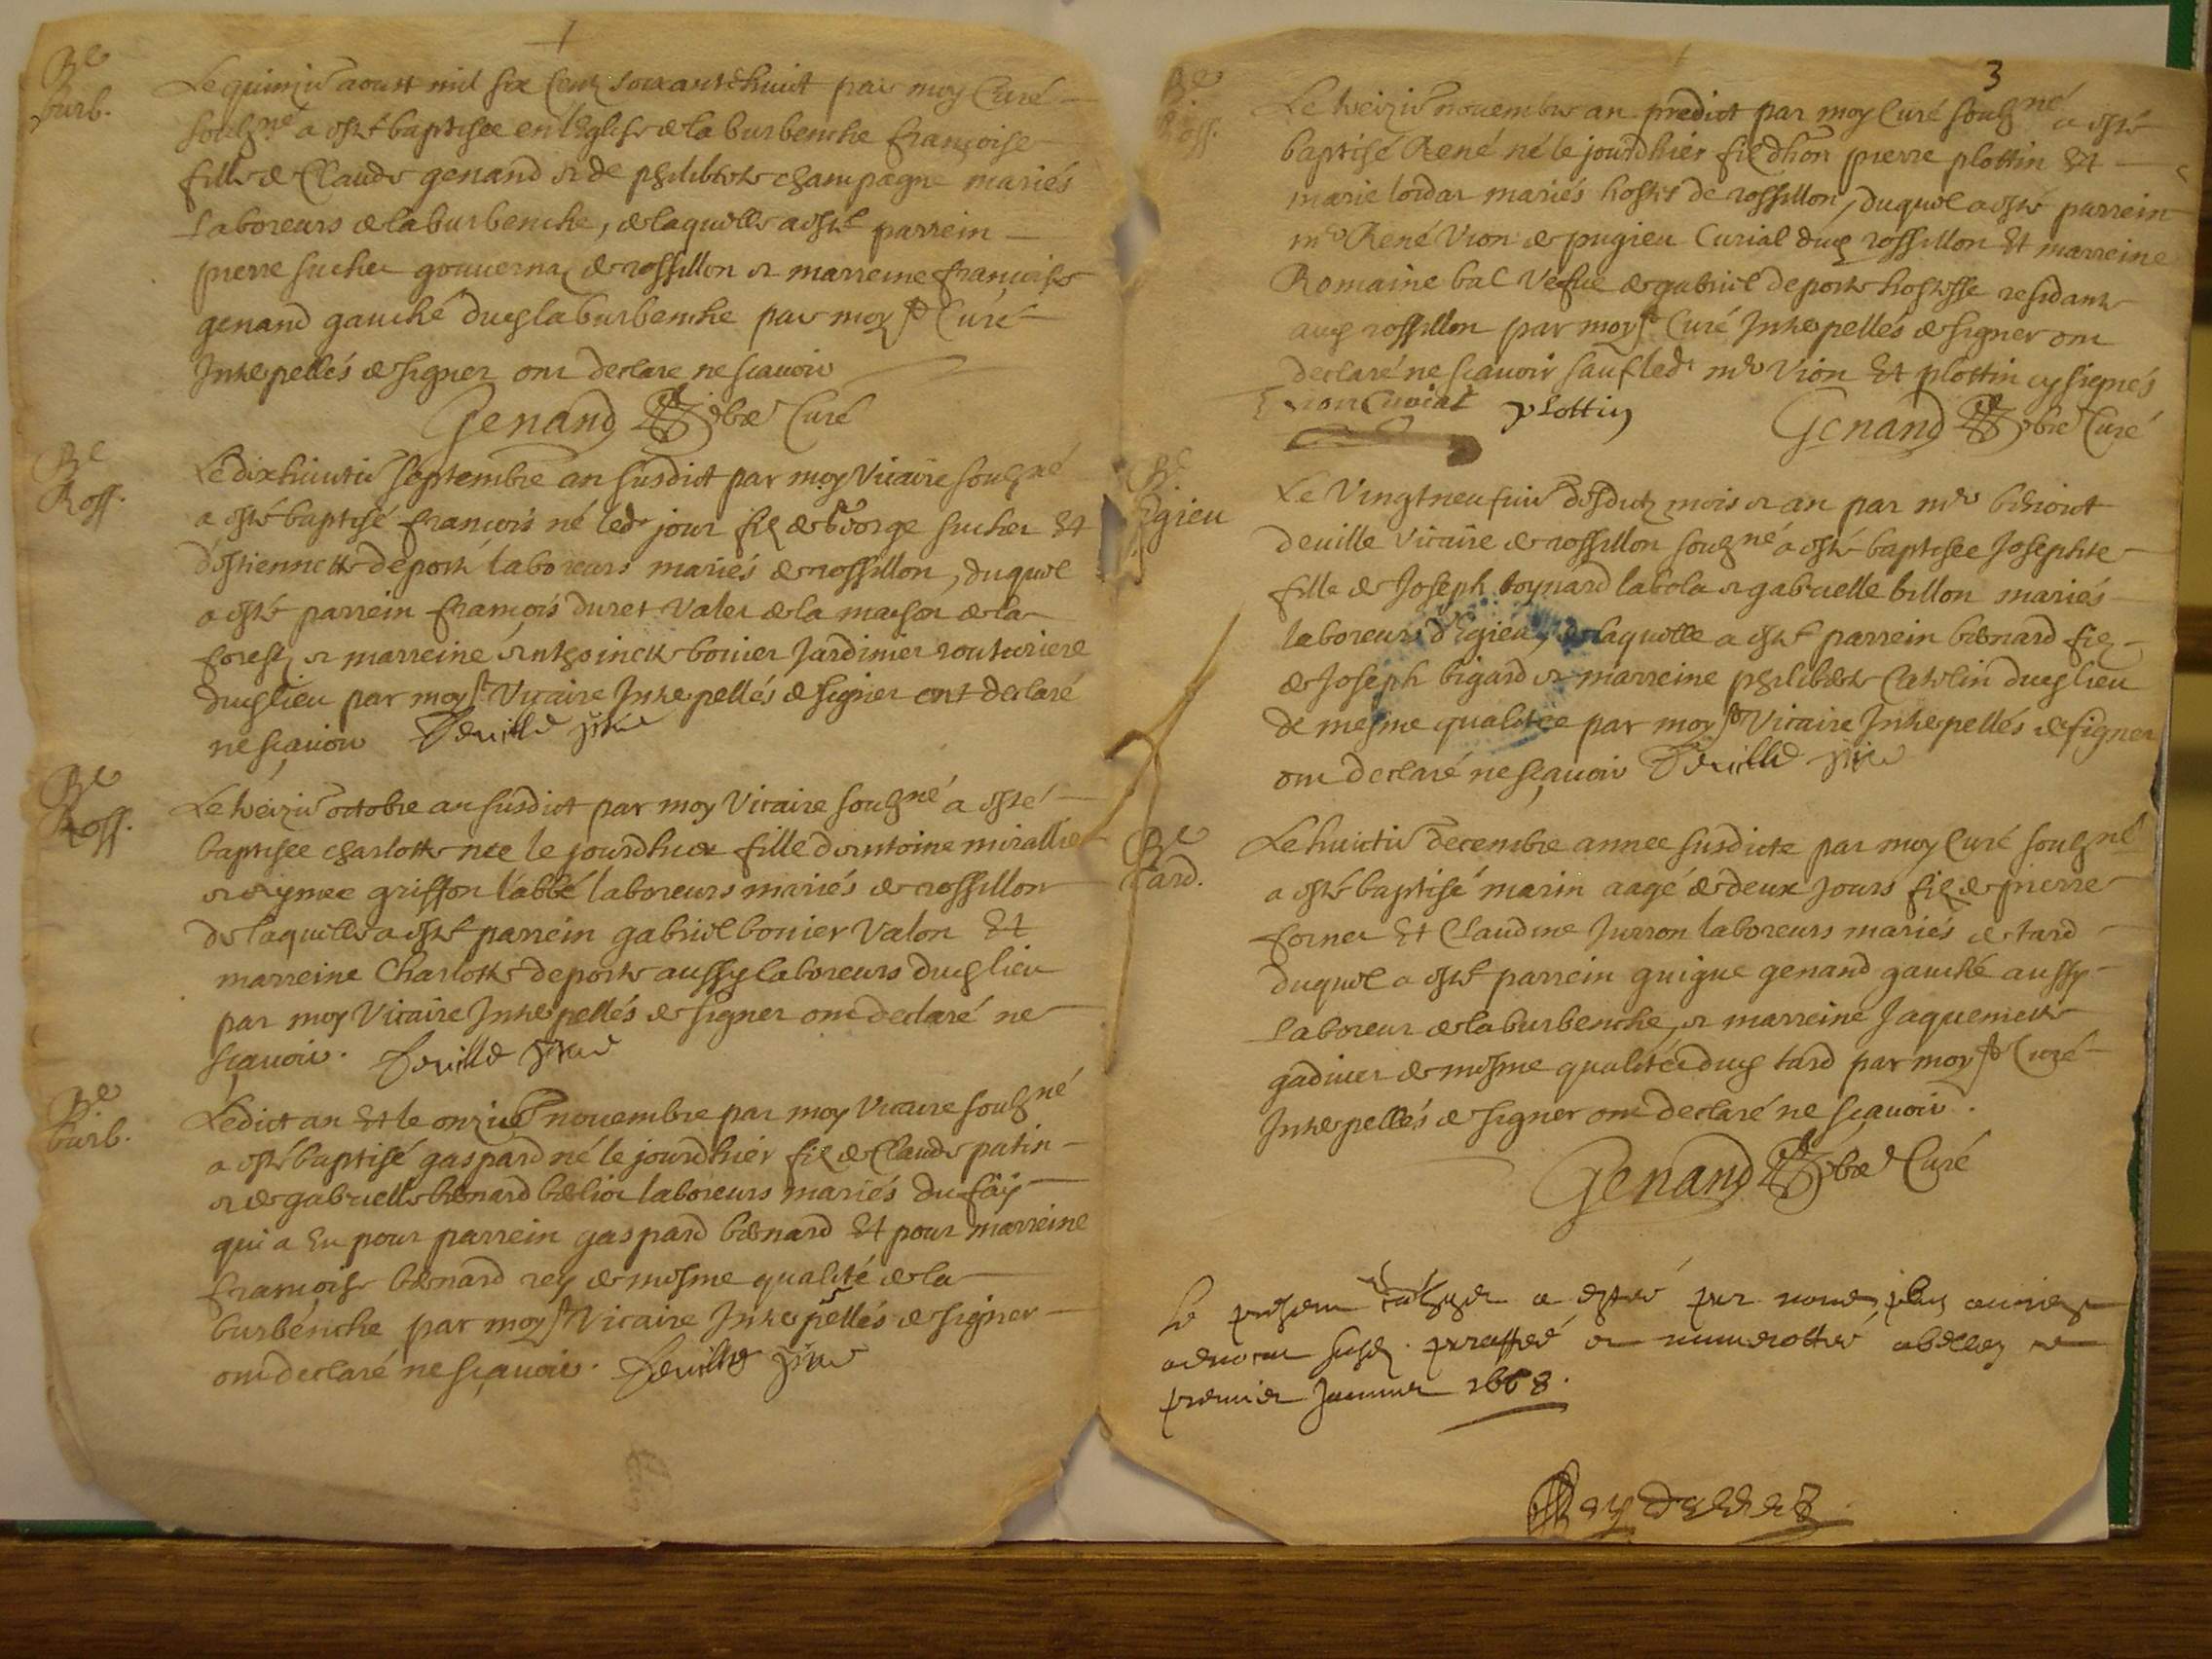 Be
burb.
Le quinziè aoust mil six centz soixantehuict par moy Curé
soubzné a esté baptisee en l'Eglise de la burbenche françoise
fille de Claude genand et de philiberte champagne mariés
Laboreurs de la burbenche, de laquelle a esté parrein
pierre sucher de rossillon et marreine françoise
genand gauché dud la burbenche par moy sd Curé
Interpellés de signer ont declare ne scavoir
Genand pbre Curé
Be
Ross.
Le dixhuictiè septembre an susdict par moy Vicaire soubzné
a esté baptisé françois né led jour filz de George sucher Et
d'estiennette deporte laboreurs mariés de rossillon, duquel
a esté parrein françois duret Valet de la maison de la
forestz et marreine Anthoinette bovier Jardinier routuriere
dud lieu par moy sd Vicaire Interpellés de signer ont declaré
ne scavoir Deville vicre
Be
Ross.
Le treiziè octobre an susdict par moy Vicaire soubzné a esté
baptisee charlotte nee le jourdhier fille d'Antoine mirallie
et Aymee griffon l'abbé laboreurs mariés de rossillon
de laquelle a esté parrein gabriel bovier Valon Et
marreine Charlotte deporte aussy laboreurs dud lieu
par moy Vicaire Interpellés de signer ont declaré ne
scavoir. Deville vicre
Be
burb.
Ledict an Et le onziè novembre par moy Vicaire soubzné
a esté baptisé gaspard né le jourdhier filz de Claude patin
et de gabrielle bernard laboreurs mariés du faÿ
qui a Eu pour parrein gaspard bernard Et pour marreine
françoise bernard rey de mesme qualité de la
burbenche par moy sd Vicaire Interpellés de signer
ont declaré ne scavoir. Deville vicre
3
Be
Ross.
Le treiziè novembre an predict par moy Curé soubzné a esté
baptisé René né le jourdhier filz d'hon pierre plottin Et
marie lordar mariés hostes de rossillon, duquel a esté parrein
mre René Vion de pugieu Curial dud rossillon Et marreine
Romaine bal Vefue de gabriel deporte hostesse residante
aud rossillon par moy sd Curé Interpellés de signer ont
declaré ne scavoir sauf led mre Vion Et plottin cy signés
Vion Curial plottin Genand pbre Curé
Be
Egieu
Le Vingtneufviè desdictz mois et an par mre benoict
deville Vicaire de rossillon soubzné a esté baptisee Josephte
fille de Joseph boynard labola et gabrielle billon mariés
laboreurs d'Egieu, de laquelle a esté parrein bernard filz
de Joseph bigard et marreine philiberte Catelin dud lieu
de mesme qualitée par moy sd Vicaire Interpellés de signer
ont declaré ne scavoir Deville vicre
Be
Tard.
Le huictiè decembre annee susdicte par moy Curé soubzné
a esté baptisé marin aagé de deux Jours filz de pierre
fornet Et Claudine Jurron laboreurs mariés de tard
duquel a esté parrein guigue genand gauché aussy
Laboreur de la burbenche, et marreine Jaquemette
gadiner de mesme qualitée dud tard par moy sd Curé
Interpellés de signer ont declaré ne scavoir.
Genand pbre Curé
Le present a esté par nous plus
paraffé et numerotté a belley le
premier Janvier 1668.